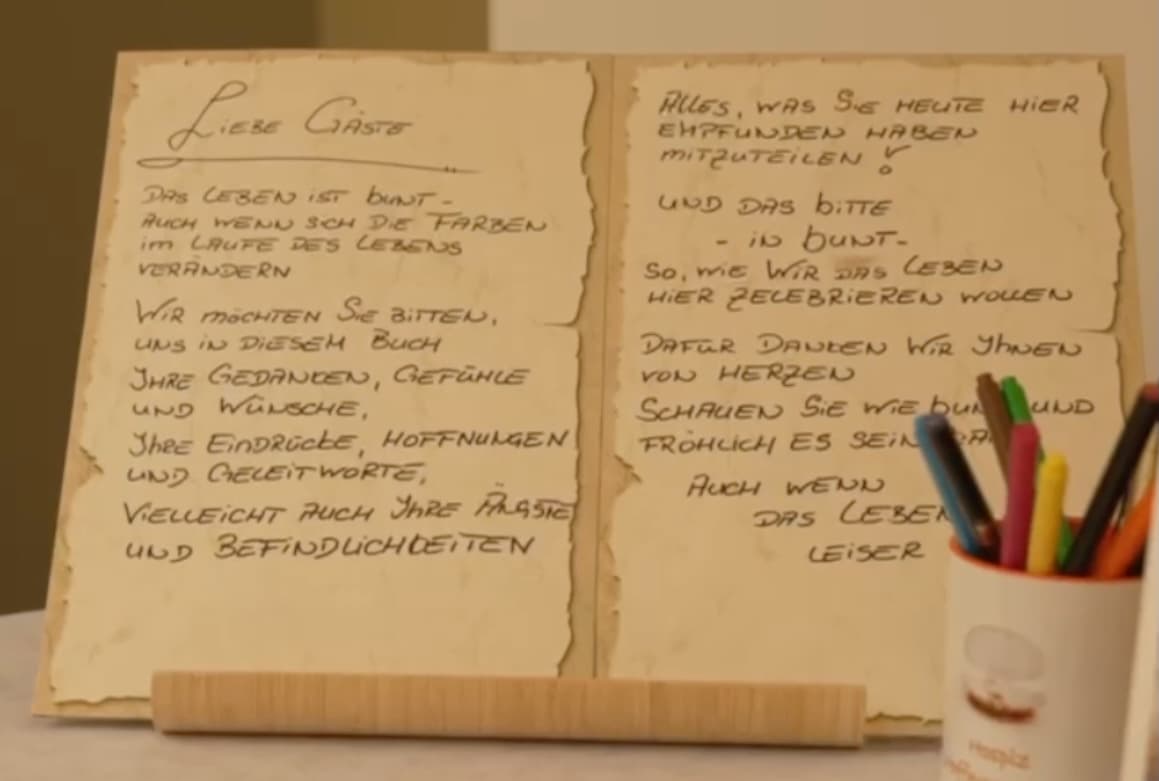 Liebe Gäste
Das Leben ist bunt -
auch wenn sich die Farben
im Laufe des Lebens
verändern
Wir möchten Sie bitten,
uns in diesem Buch
Ihre Gedanken, Gefühle
und Wünsche,
Ihre Eindrücke, Hoffnungen
und Geleitworte,
vielleicht auch Ihre Ängste
und Befindlichkeiten
Alles, was Sie heute hier
empfunden haben
mitzuteilen!
und das bitte
- in bunt -
so, wie wir das Leben
hier zelebrieren wollen
Dafür danken wir Ihnen
von Herzen
Schauen Sie wie und
fröhlich es sein
auch wenn
das Leben
leiser
Hospiz